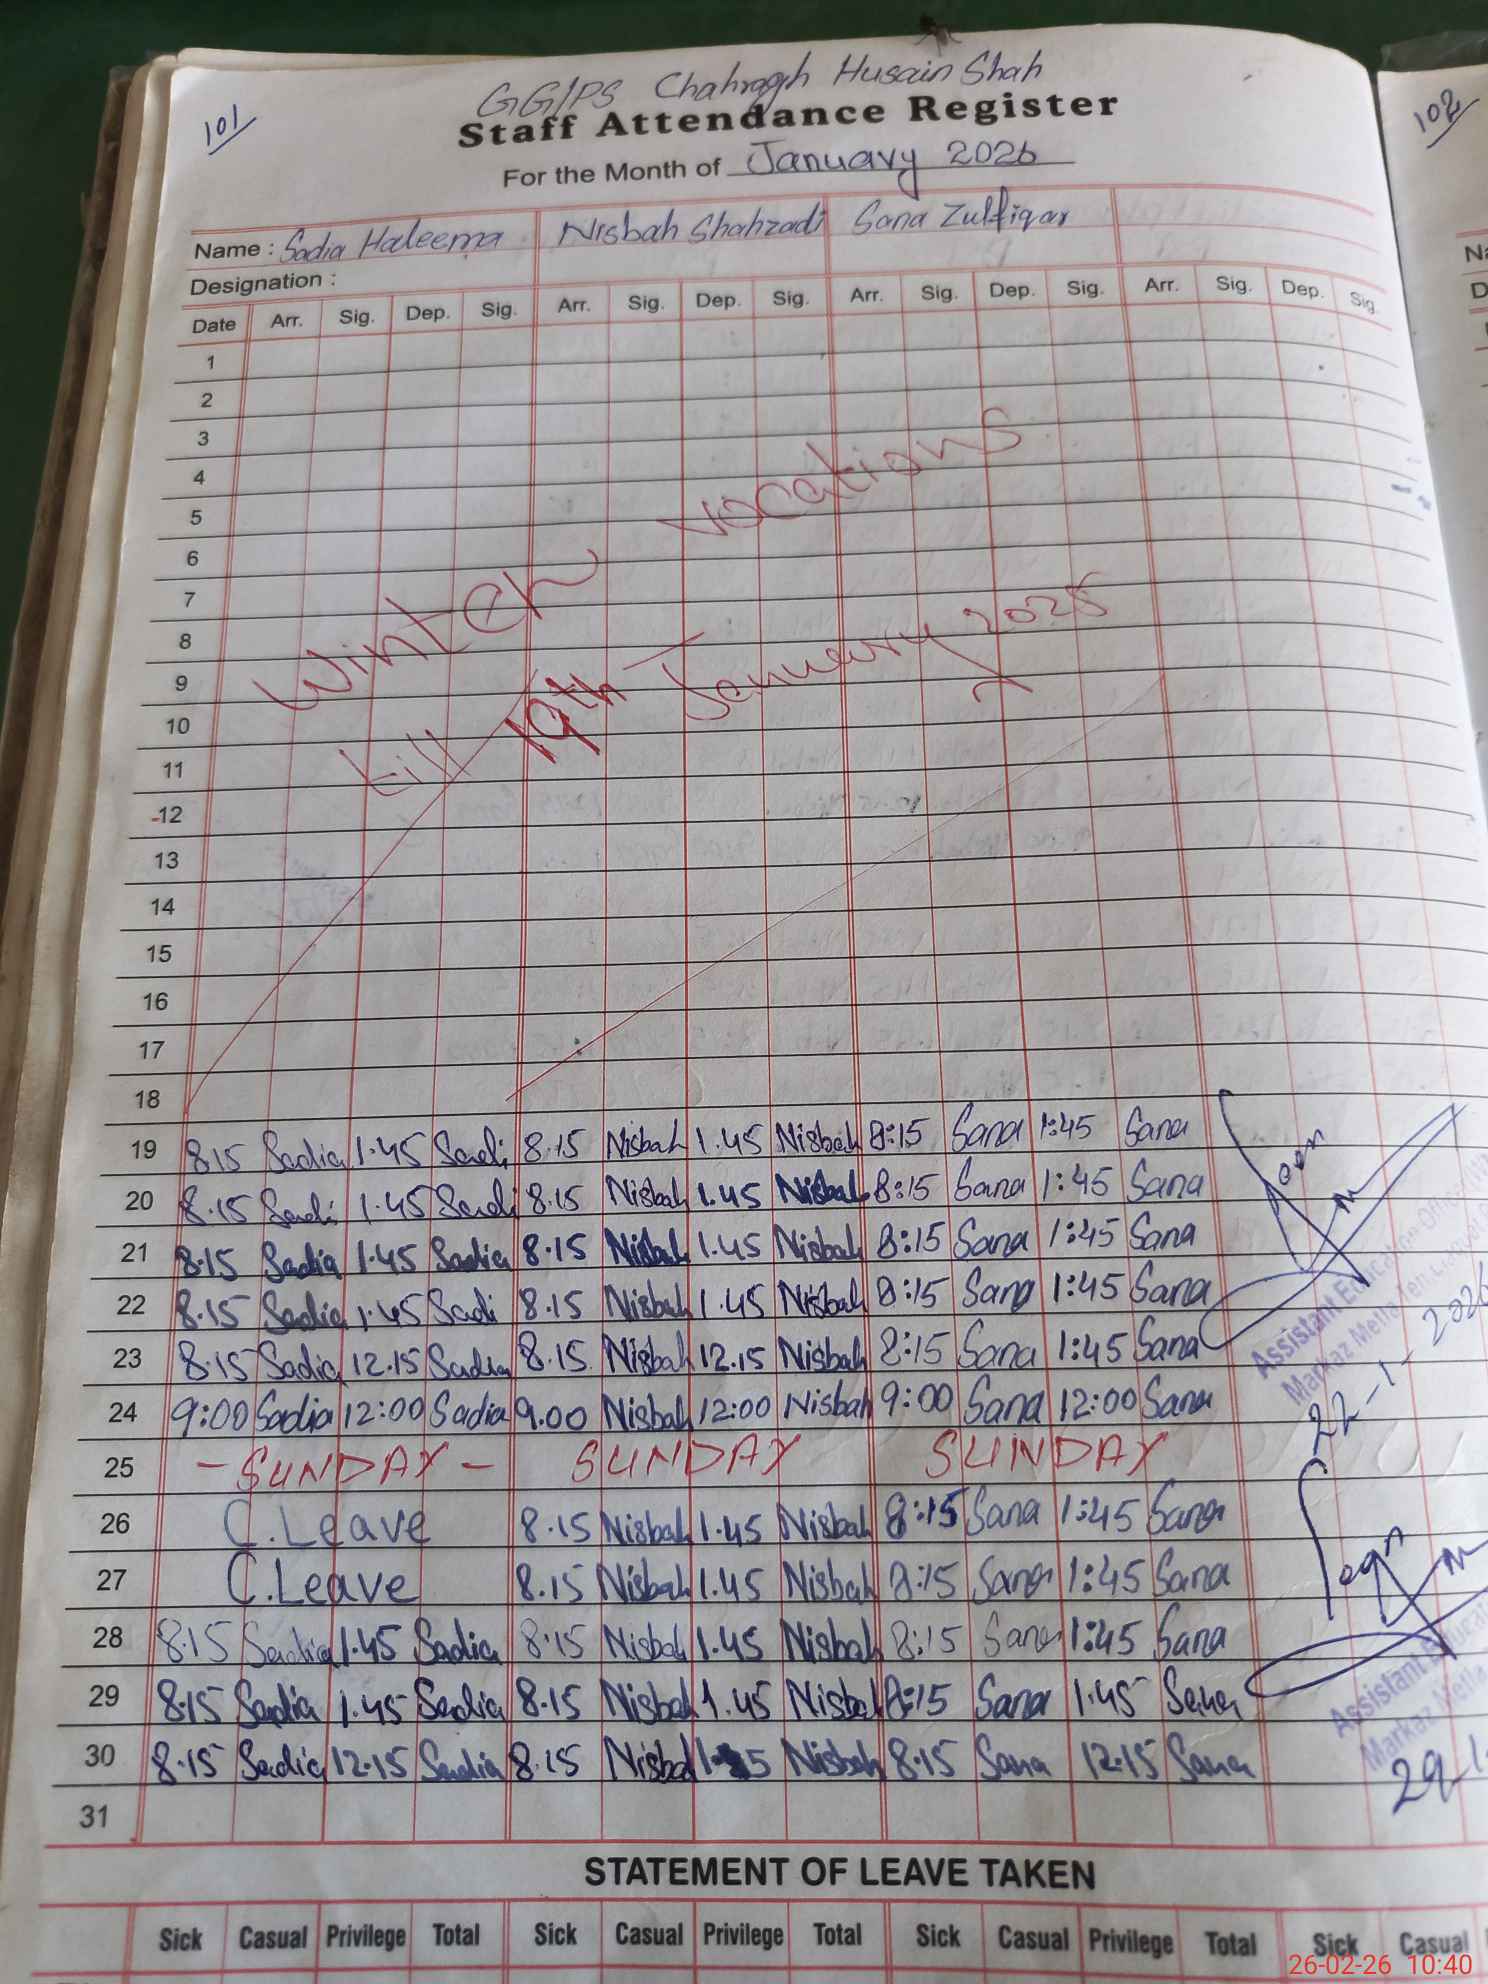 101
GG/PS Chahragh Husain Shah
102
Staff Attendance Register
For the Month of January 2026
Name : Sadia Haleema Nisbah Shahzadi Sana Zulfiqar
Designation :
Date Arr. Sig. Dep. Sig. Arr. Sig. Dep. Sig. Arr. Sig. Dep. Sig. Arr. Sig. Dep. Sig.
1
2
3
4
5
6
7
8
9
10
11
12
13
14
15
16
17
18
Winter vocations
till 19th January 2025
19 8.15 Sadia 1.45 Sadi 8.15 Nisbah 1.45 Nisbah 8:15 Sana 1:45 Sana
20 8.15 Sadi 1.45 Sadi 8.15 Nisbah 1.45 Nisbah 8:15 Sana 1:45 Sana
21 8.15 Sadia 1.45 Sadia 8.15 Nisbah 1.45 Nisbah 8:15 Sana 1:45 Sana
22 8.15 Sadia 1.45 Sadi 8.15 Nisbah 1.45 Nisbah 8:15 Sana 1:45 Sana
23 8.15 Sadia 12.15 Sadia 8.15 Nisbah 12.15 Nisbah 8:15 Sana 1:45 Sana
24 9:00 Sadia 12:00 Sadia 9.00 Nisbah 12:00 Nisbah 9:00 Sana 12:00 Sana
25 - SUNDAY - SUNDAY SUNDAY
26 C.Leave 8.15 Nisbah 1.45 Nisbah 8:15 Sana 1:45 Sana
27 C.Leave 8.15 Nisbah 1.45 Nisbah 8:15 Sana 1:45 Sana
28 8.15 Sadia 1.45 Sadia 8.15 Nisbah 1.45 Nisbah 8:15 Sana 1:45 Sana
29 8.15 Sadia 1.45 Sadia 8.15 Nisbah 1.45 Nisbah 8:15 Sana 1.45 Sana
30 8.15 Sadia 12.15 Sadia 8.15 Nisbah Nisbah 8.15 Sana 12.15 Sana
31
Assistant Education Officer
Markaz Mella
22-1-2026
Assistant Educat
Markaz Mella
29-1
STATEMENT OF LEAVE TAKEN
Sick Casual Privilege Total Sick Casual Privilege Total Sick Casual Privilege Total Sick Casual
26-02-26 10:40